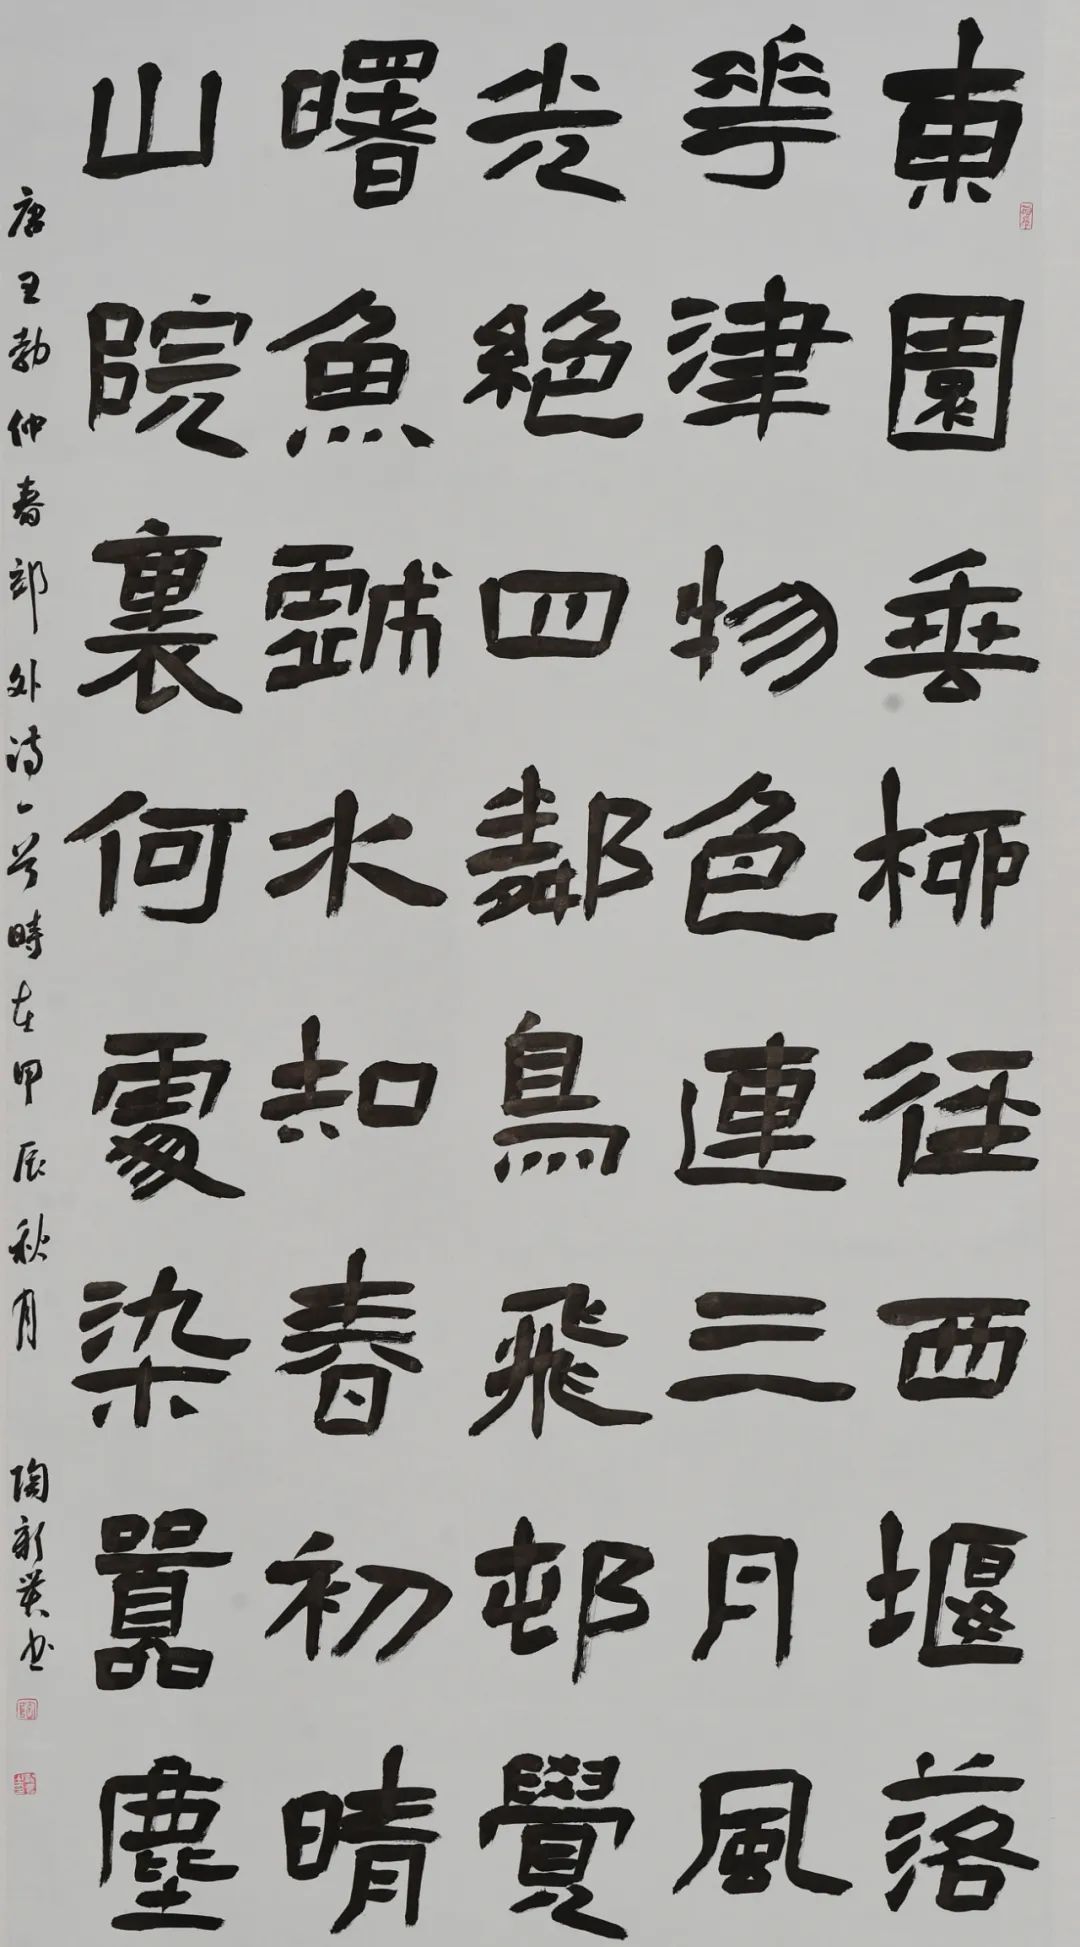 東園垂柳徑西堰落
華津物色連三月風
光絶四鄰鳥飛邨覺
曙魚戲水知春初晴
山院裏何處染囂塵
唐王勃仲春郊外詩一首時在甲辰秋月 陶新業书